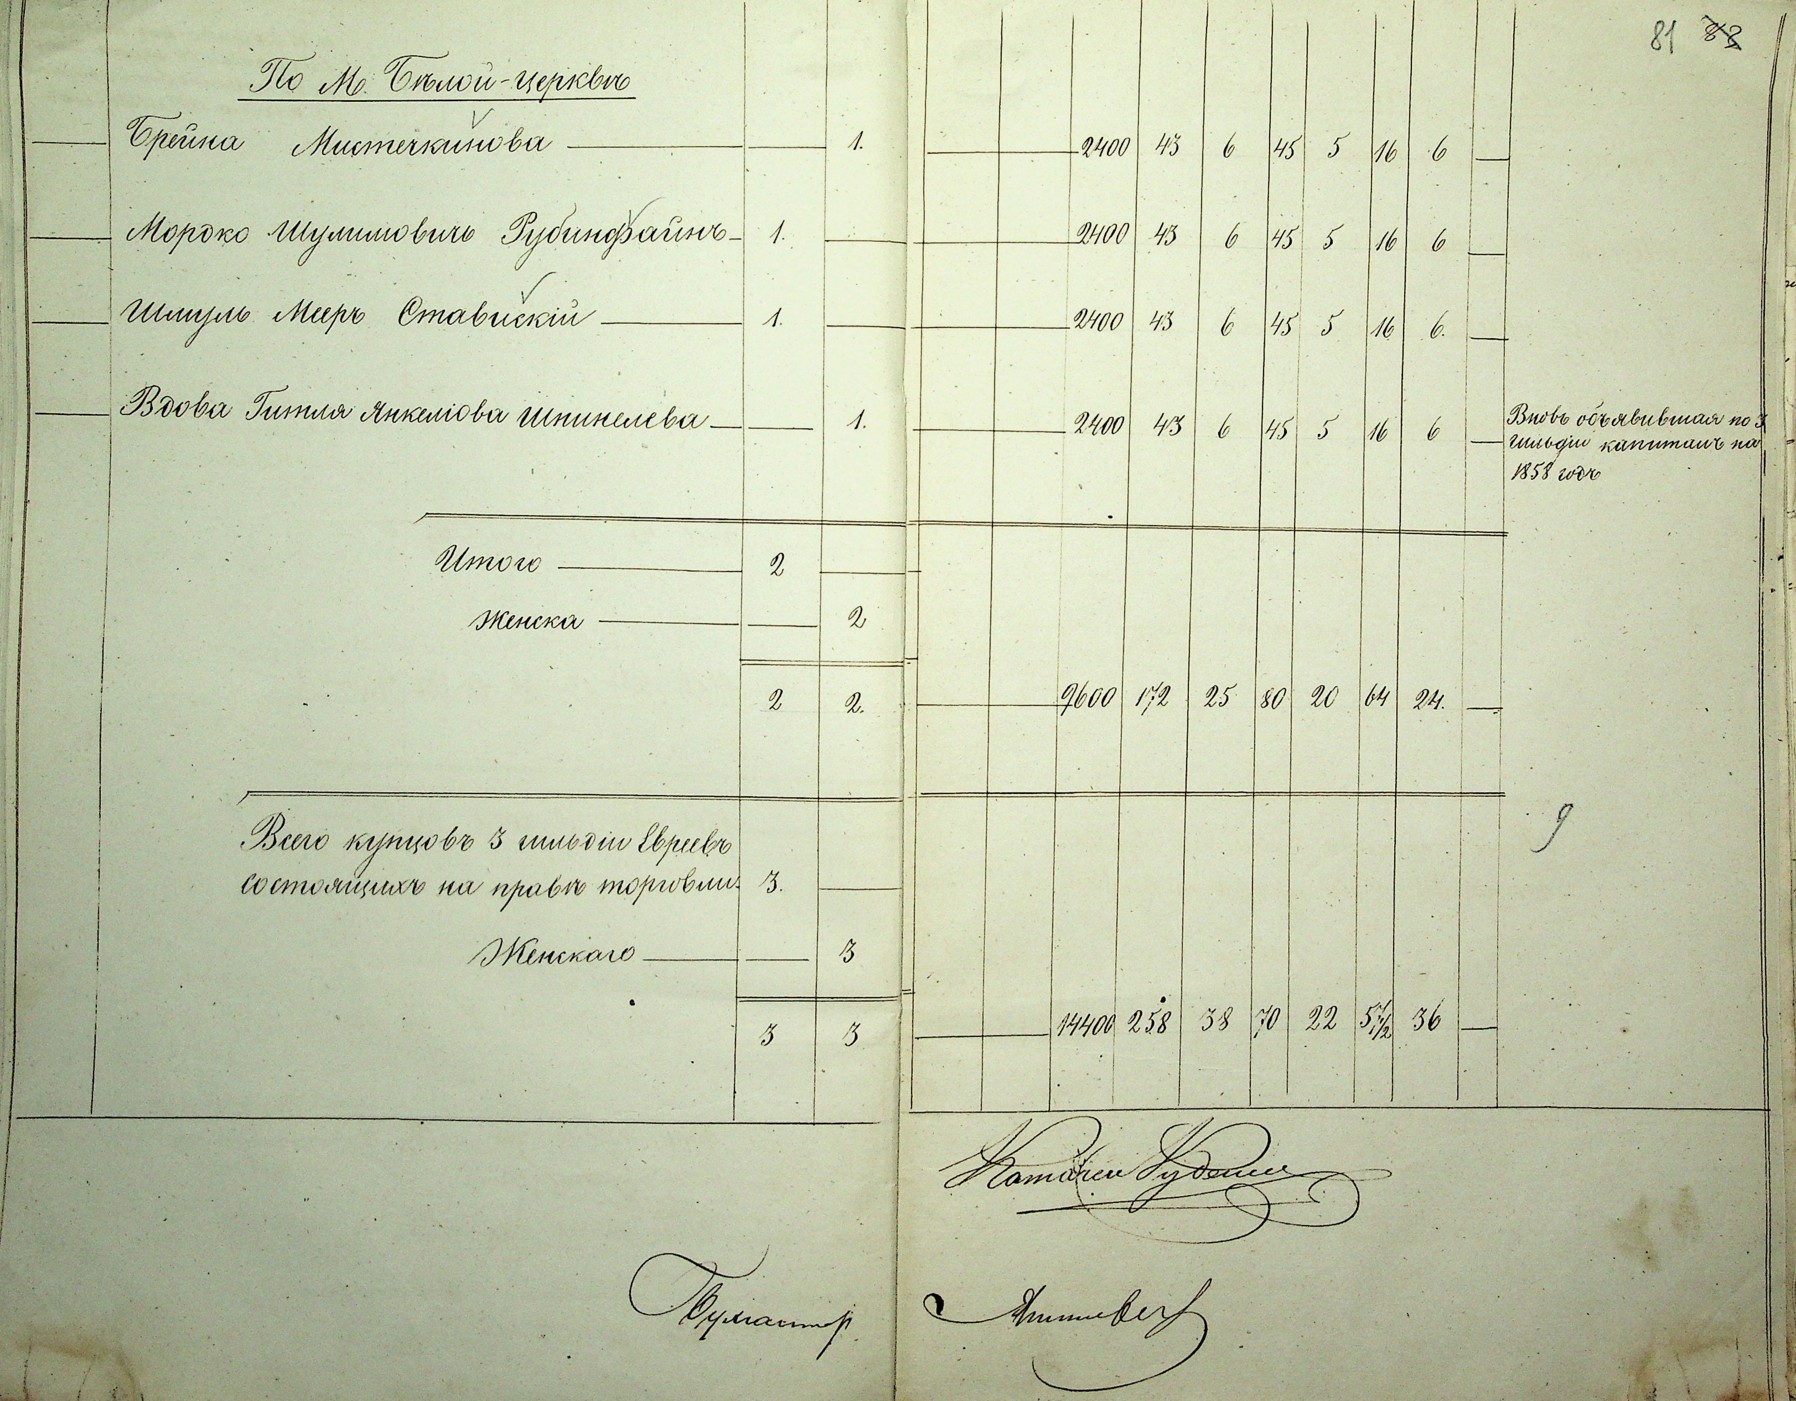 81 88
По М. Бѣлой-церквѣ
Брейна Мистечкинова 1. 2400 43 6 45 5 16 6
Мордко Шулимовичъ Рубинфайнъ 1. 2400 43 6 45 5 16 6
Шмуль Мееръ Ставискій 1. 2400 43 6 45 5 16 6.
Вдова Гитля Янкеліова Шпинелева 1. 2400 43 6 45 5 16 6 Вновь объявившая по 3
гильдіи капиталъ на
1858 годъ
Итого 2
Женска 2
2 2. 9600 172 25 80 20 64 24.
9
Всего купцовъ 3 гильдіи Евреевъ
состоящихъ на правѣ торговли. 3.
Женскаго 3
3 3 14400 258 38 70 22 57 1/2 36